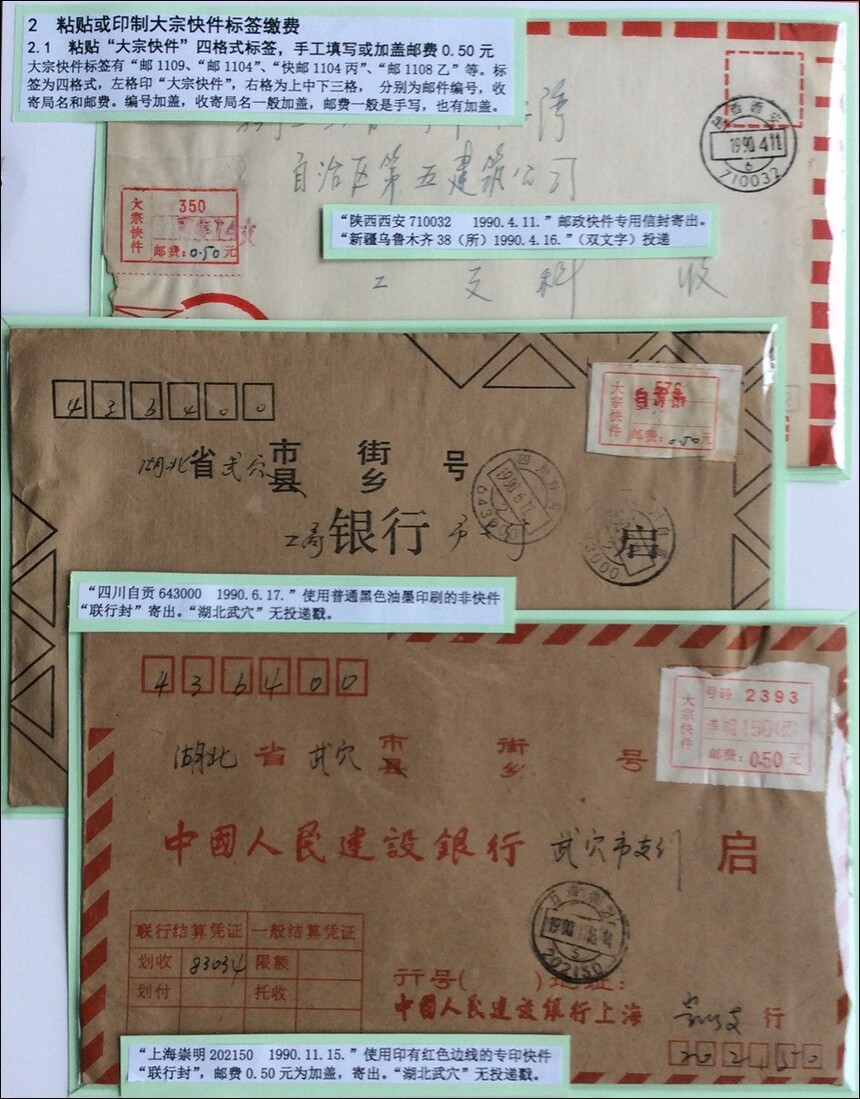 2 粘贴或印制大宗快件标签缴费
2.1 粘贴“大宗快件”四格式标签，手工填写或加盖邮费0.50元
大宗快件标签有“邮1109、“邮1104”、“快邮1104丙”、“邮1108乙”等。标
签为四格式，左格印“大宗快件”，右格为上中下三格， 分别为邮件编号，收
寄局名和邮费。编号加盖，收寄局名一般加盖，邮费一般是手写，也有加盖。
陕西西安
1990.4.11
6
710032
自治区第五建筑公司
大宗快件
350
邮费:0.50元
“陕西西安710032 1990.4.11.”邮政快件专用信封寄出。
“新疆乌鲁木齐38（所）1990.4.16.”（双文字）投递
工 交 科 收
436400
大宗快件
576
自贡市
邮费:0.50元
湖北省武穴市县 街乡 号
工商银行 启
“四川自贡643000 1990.6.17.”使用普通黑色油墨印刷的非快件
“联行封”寄出。“湖北武穴”无投递戳。
436400
大宗快件
号码 2393
邮费:0.50元
湖北省武穴市县 街乡 号
中國人民建設銀行 武穴市支行 启
1990
202150
联行结算凭证 一般结算凭证
划收 83034 限额
划付 托收
行号( )地址:
中國人民建設銀行上海 行
202150
“上海崇明202150 1990.11.15.”使用印有红色边线的专印快件
“联行封”，邮费0.50元为加盖，寄出。“湖北武穴”无投递戳。